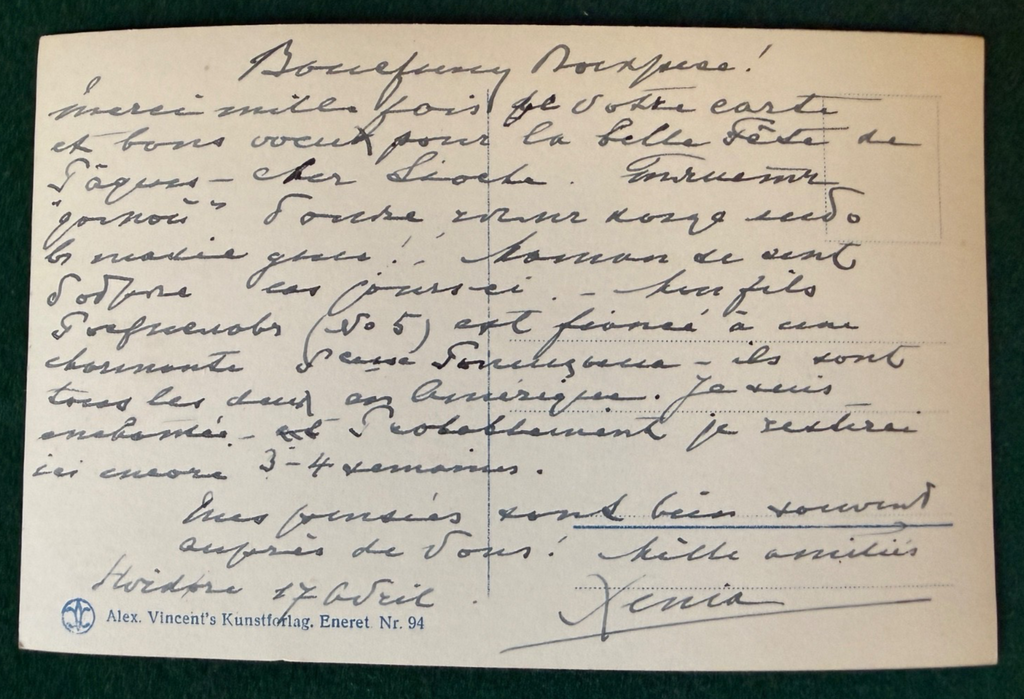 Воистину Воскресе!
merci mille fois pr votre carte
et bons voeux pour la belle Fête de
Pâques – cher Lioche.
le mariage !! Maman se sent
ces jours ci. – Mon fils
(No 5) est fiancé à une
charmante – ils sont
tous les deux en Amérique. Je suis
enchantée – et Probablement je resterai
ici encore 3–4 semaines.
mes pensées sont bien souvent
auprès de Vous! Mille amitiés
Hvidöre 17 Avril.
Xenia
Alex. Vincent's Kunstforlag. Eneret. Nr. 94